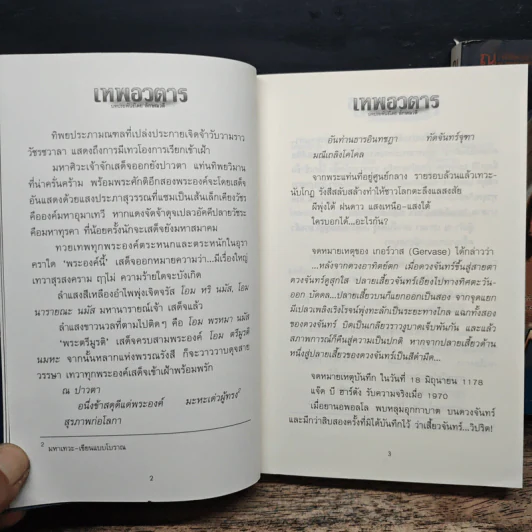 เทพอวตาร
ทิพยประภามณฑลที่เปล่งประกายเจิดจ้าวับวามราว
วัชรชวาลา แสดงถึงการมีเทวโองการเรียกเข้าเฝ้า
มหาศิวะเจ้าจักเสด็จออกยังปาวตา แท่นทิพยวิมาน
ที่น่าครั่นคร้าม พร้อมพระศักดิอีกสองพระองค์จะโดยเสด็จ
อันแสดงด้วยแสงประภาสุวรรณที่แซมเป็นเส้นเล็กเคียงวัชระ
คือองค์มหาอุมาเทวี หากแดงจัดจ้าดุจเปลวอัคคีปลายวัชระ
คือมหาทุรคา ที่น้อยครั้งนักจะเสด็จยังมหาสมาคม
ทวยเทพทุกพระองค์ตระหนกและตระหนักในอุรา
คราใด 'พระองค์นี้' เสด็จออกหมายความว่า...มีเรื่องใหญ่
เทวาสุรสงคราม ฤๅไม่ ความร้ายใดจะบังเกิด
ลำแสงสีเหลืองอำไพพุ่งเจิดจรัส โอม หริ นมัส, โอม
นารายณะ นมัส มหานารายณ์เจ้า เสด็จแล้ว
ลำแสงขาวนวลที่ตามไปติดๆ คือ โอม พรหมา นมัส
'พระตรีมูรติ' เสด็จครบสามพระองค์ โอม ตรีมูรติ
นมหะ จากนั้นหลากแห่งพรรณรังสี ก็จะวาววาบดุจสาย
วรรษา เทวาทุกพระองค์เสด็จเข้าเฝ้าพร้อมพรัก
ณ ปาวตา
อนึ่งข้าสดุดีแด่พระองค์ มะหะเด่วผู้ทรง²
สุรภาพก่อโลกา
² มหาเทวะ-เขียนแบบโบราณ
2
เทพอวตาร
อันท่านธารอินทชฎา ทัดจันทร์จุฑา
มณีเถลิงโคไคล
จากพระแท่นที่อยู่ศูนย์กลาง รายรอบล้วนแล้วเทวะ-
นับโกฏ รังสีสลับสล้างทำให้ชาวโลกตะลึงแลสงสัย
ผีพุ่งไต้ ฝนดาว แสงเหนือ-แสงใต้
ใครบอกได้...อะไรกัน?
จดหมายเหตุของ เกอร์วาส (Gervase) ได้กล่าวว่า
...หลังจากดวงอาทิตย์ตก เมื่อดวงจันทร์ขึ้นสู่สายตา
ดวงจันทร์ดูสุกใส ปลายเสี้ยวจันทร์เอียงไปทางทิศตะวัน-
ออก บัดดล...ปลายเสี้ยวบนก็แยกออกเป็นสอง จากจุดแยก
มีเปลวเพลิงเริงโรจน์พุ่งทะลักเป็นระยะทางไกล แฉกทั้งสอง
ของดวงจันทร์ บิดเป็นเกลียวราวงูบาดเจ็บพ้นกัน และแล้ว
สภาพการณ์ก็คืนสู่ความเป็นปกติ หากจากปลายเสี้ยวด้าน
หนึ่งสู่ปลายเสี้ยวของดวงจันทร์เป็นสีดำมืด...
จดหมายเหตุบันทึก ในวันที่ 18 มิถุนายน 1178
แจ๊ด บี ฮาร์ตัง รับความจริงเมื่อ 1970
เมื่อยานอพอลโล พบหลุมอุกกาบาต บนดวงจันทร์
และมีกว่าสิบสองครั้งที่มีได้บันทึกไว้ ว่าเสี้ยวจันทร์...วิปริต!
3